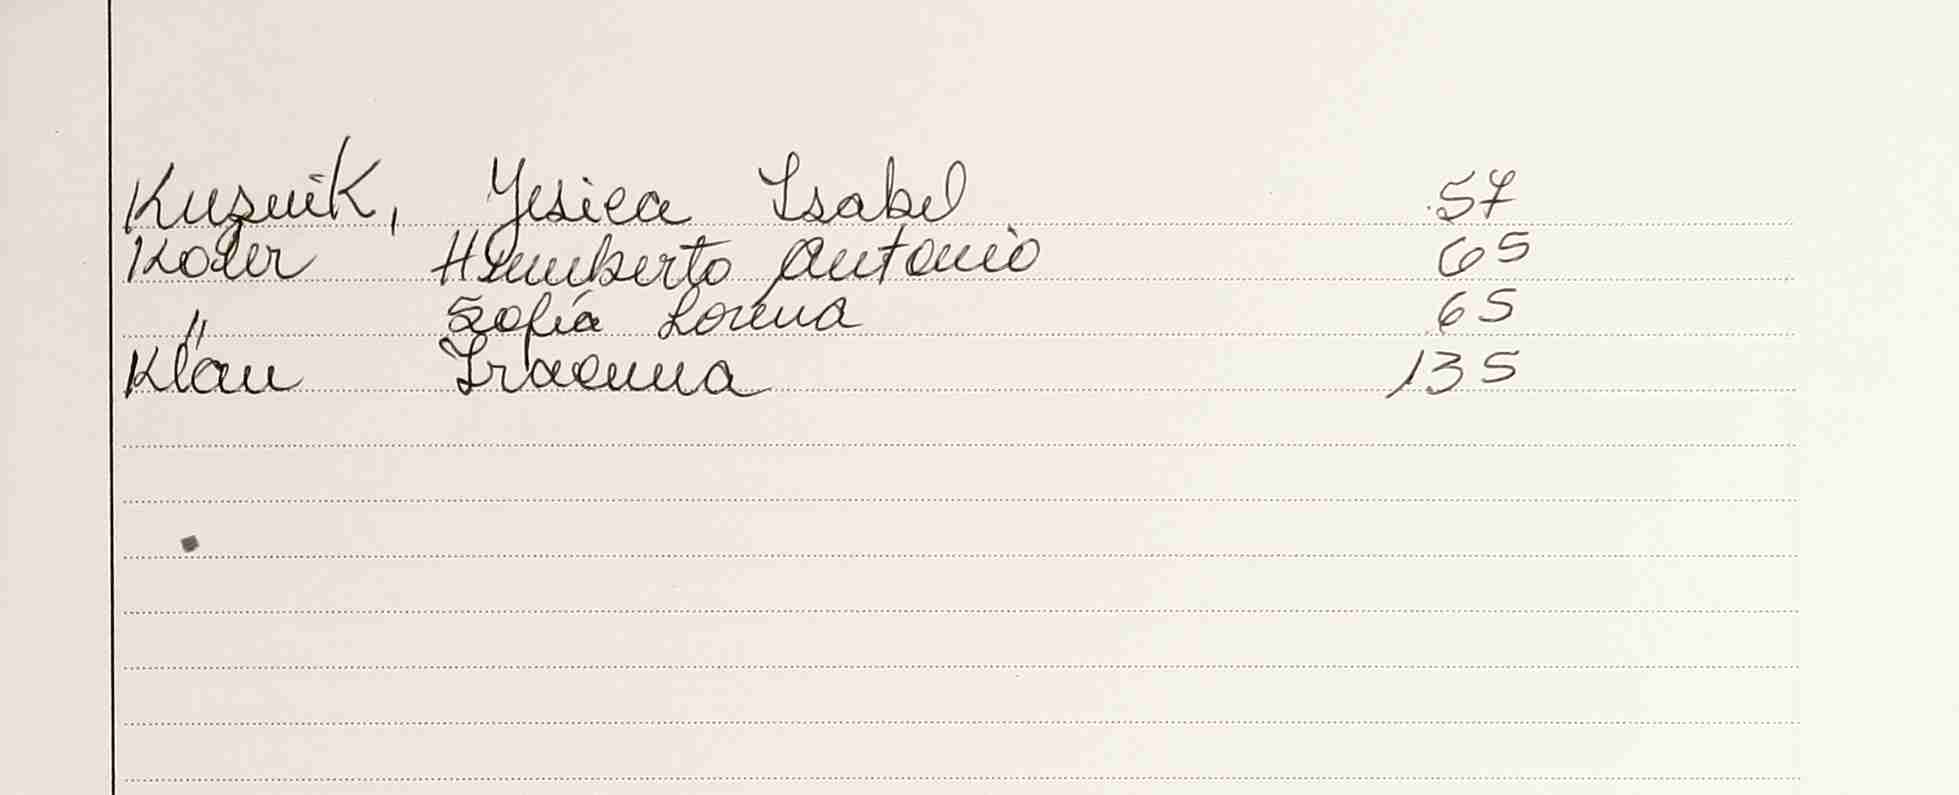 Kuzník, Yesica Isabel 57
Koler Humberto Antonio 65
" Sofía Lorena 65
Klau 135